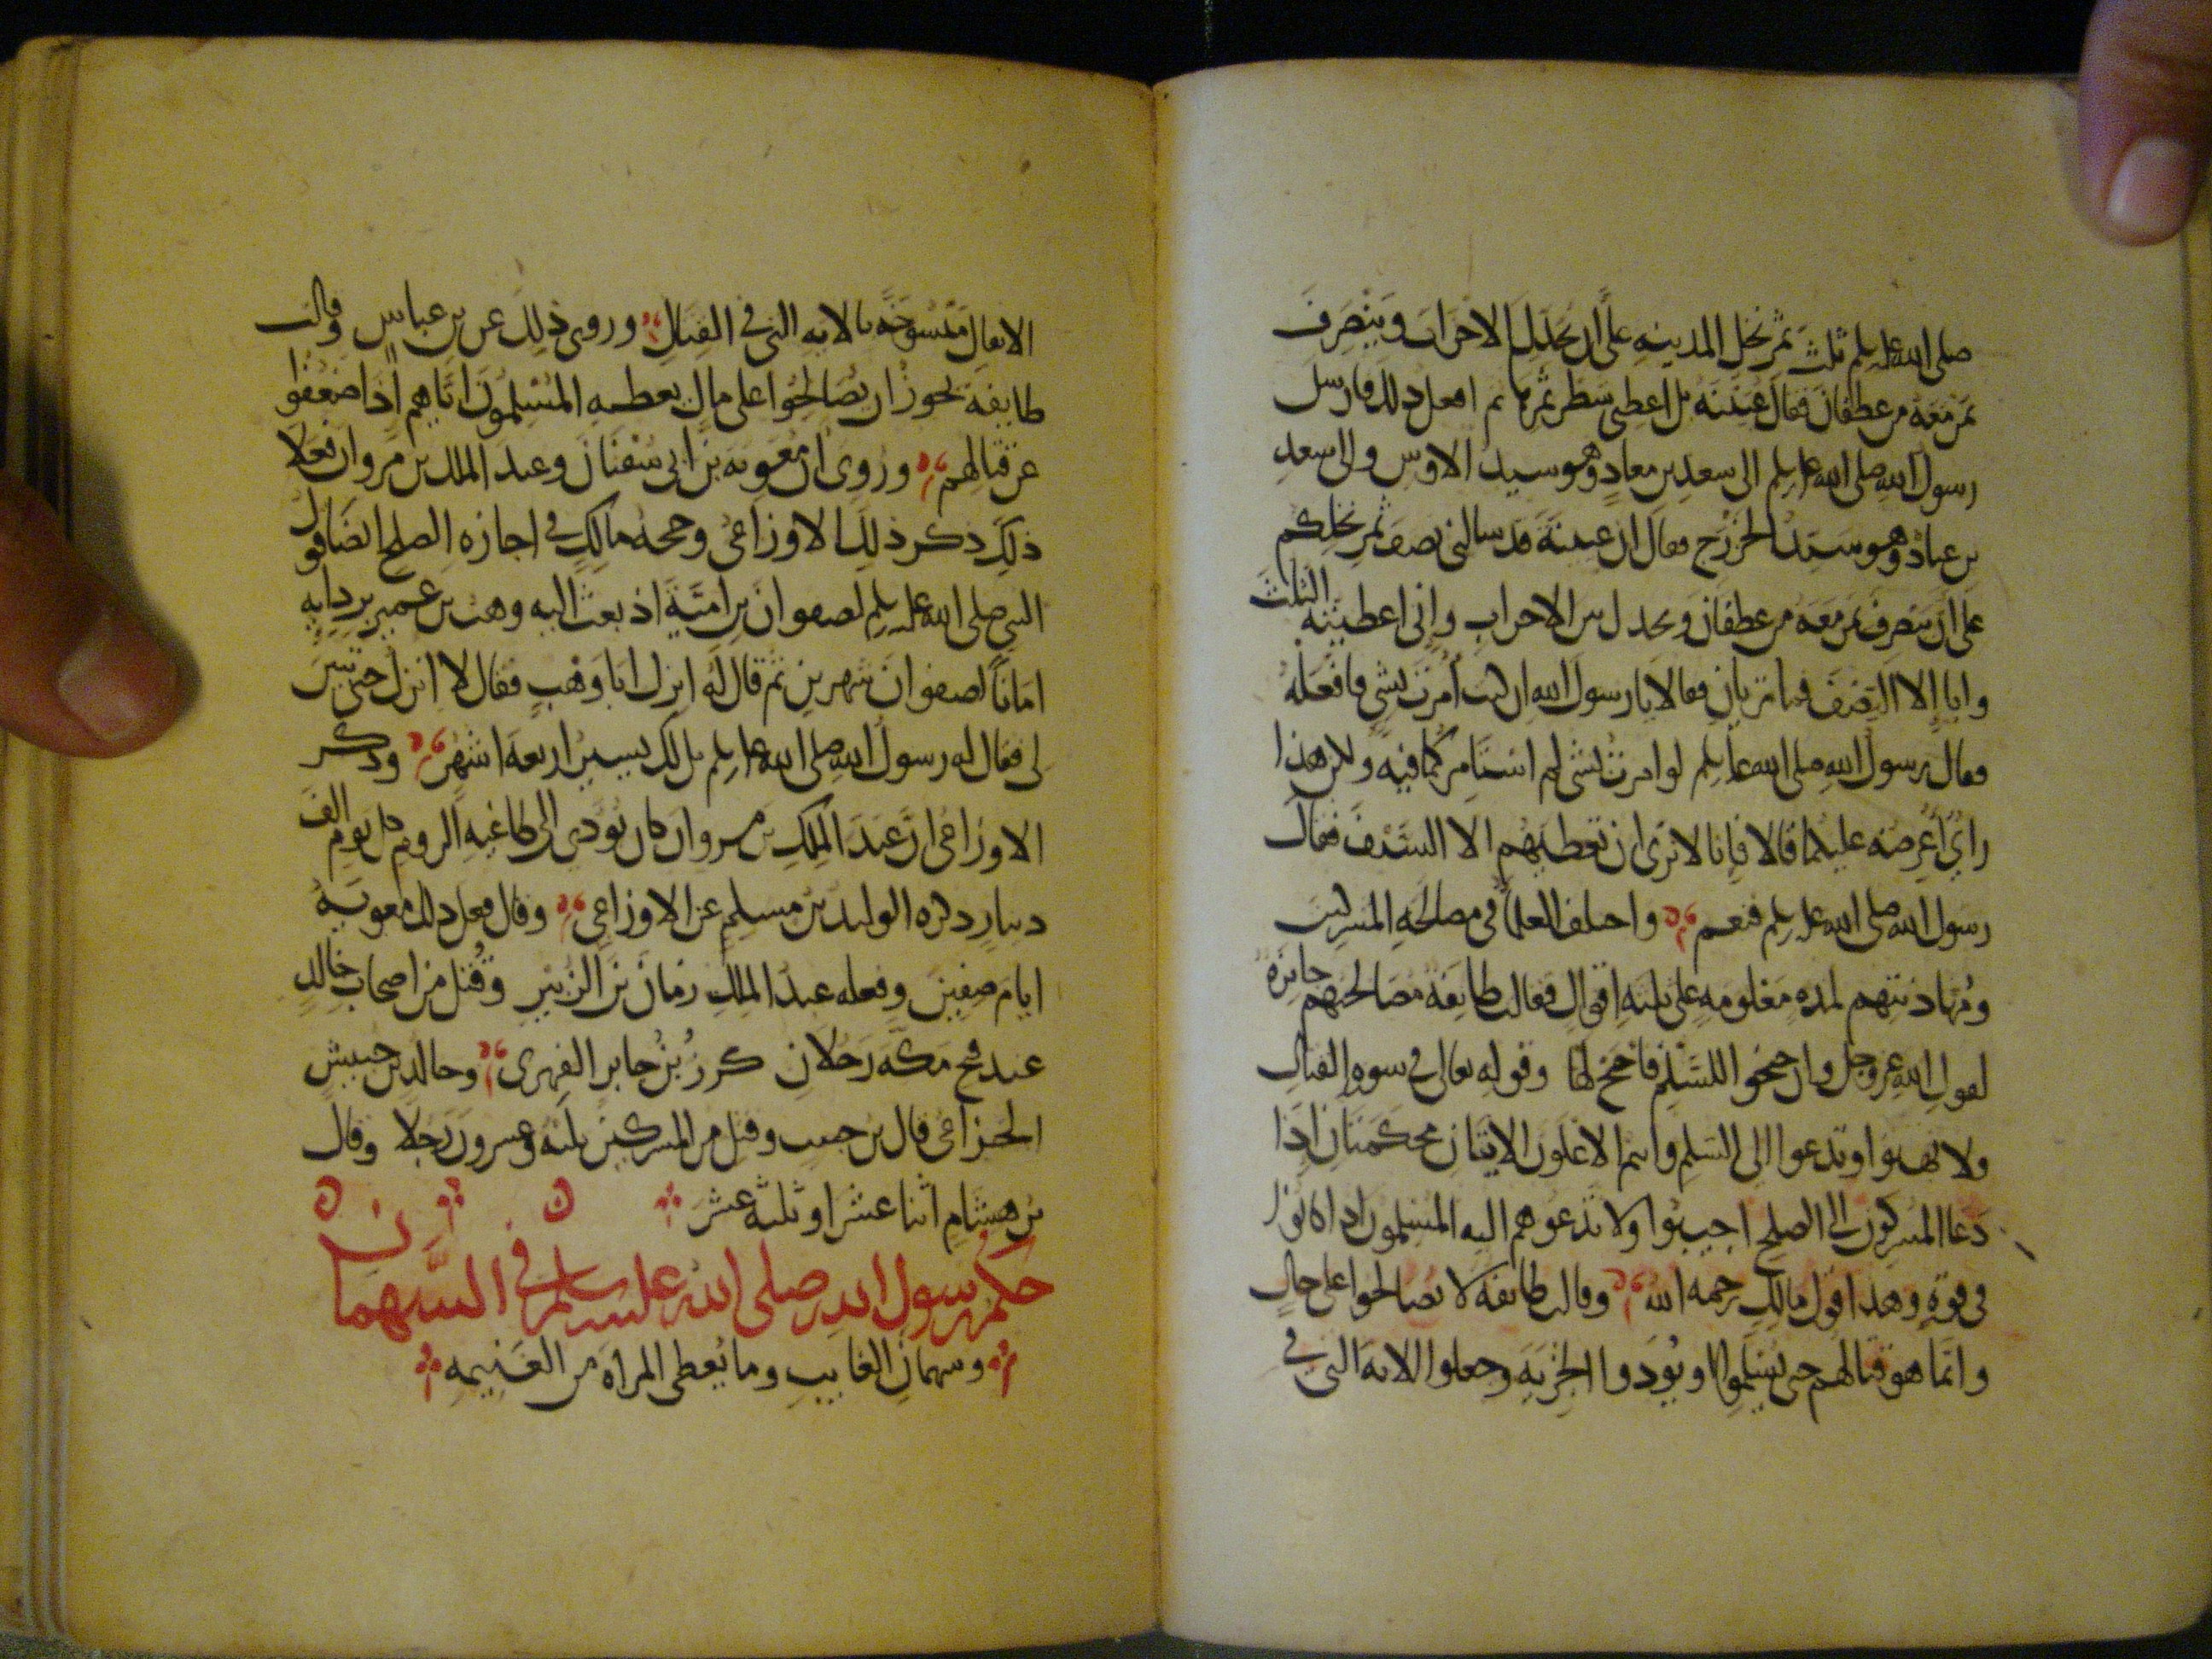 صلى الله عليه وسلم ثلث ثمر نخل المدينه على ان يخذل الاحزاب وينصرف
بمن معه من غطفان فقال عيينه بل اعطني شطر ثمرها ثم افعل ذلك فارسل
رسول الله صلى الله عليه وسلم الى سعد بن معاذ وهو سيد الاوس والى سعد
بن عباده وهو سيد الخزرج فقال ان عيينة قد سالني نصف ثمر نخلكم
على ان ينصرف بمن معه من غطفان ويخذل بين الاحزاب واني اعطيته الثلث
وابا الا النصف فما تريان فقالا يا رسول الله ان كنت امرت بشي فافعله
فقال رسول الله صلى الله عليه وسلم لو امرت بشي لم استامركما فيه ولكن هذا
راي اعرضه عليكما قالا فانا لا نرى ان نعطيهم الا السيف فقال
رسول الله صلى الله عليه وسلم فنعم واختلف العلما في مصالحة المشركين
ومهادنتهم لمده معلومه على ثلثه اقوال فقالت طايفة مصالحتهم جايزه
لقول الله عز وجل وان جنحوا للسلم فاجنح لها وقوله تعالى في سوره القتال
ولا تهنوا وتدعوا الى السلم وانتم الاعلون الايتان محكمتان اذا
دعا المشركون الى الصلح اجيبوا ولا تدعوهم اليه المسلمون اذا كانوا
في قوة وهذا قول مالك رحمه الله وقالت طايفه لا يصالحوا على حال
وانما هو قتالهم حتى يسلموا او يودوا الجزيه وجعلوا الايه التي في
الانفال منسوخه بالايه التي في القتال وروى ذلك عن بن عباس وقالت
طايفة يجوز ان يصالحوا على مال يعطيه المسلمون اياهم اذا ضعفوا
عن قتالهم وروى ان معويه بن ابي سفيان وعبد الملك بن مروان فعلا
ذلك ذكر ذلك الاوزاعي وحجة مالك في اجازه الصلح ايضا قول
النبي صلى الله عليه وسلم لصفوان بن امية اذ بعث اليه وهب بن عمير بردايه
امانا لصفوان شهرين ثم قال له انزل ابا وهب فقال لا انزل حتى تبين
لي فقال له رسول الله صلى الله عليه وسلم بل لك تسيير اربعة اشهر وذكر
الاوزاعي ان عبد الملك بن مروان كان يودي الى طاغيه الروم كل يوم الف
دينار ذكره الوليد بن مسلم عن الاوزاعي وقال فعل ذلك معويه
ايام صفين وفعله عبد الملك زمان بن الزبير وقتل من اصحاب خالد
عند فتح مكه رجلان كرز بن جابر الفهري وخالد بن حبيش
الخزاعي قال بن حبيب وقتل من المشركين ثلثه وعشرون رجلا وقال
بن هشام اثنا عشر او ثلثة عشر
حكم رسول الله صلى الله عليه وسلم في السهمان
وسهمان الغايب وما يعطى المراه من الغنيمه